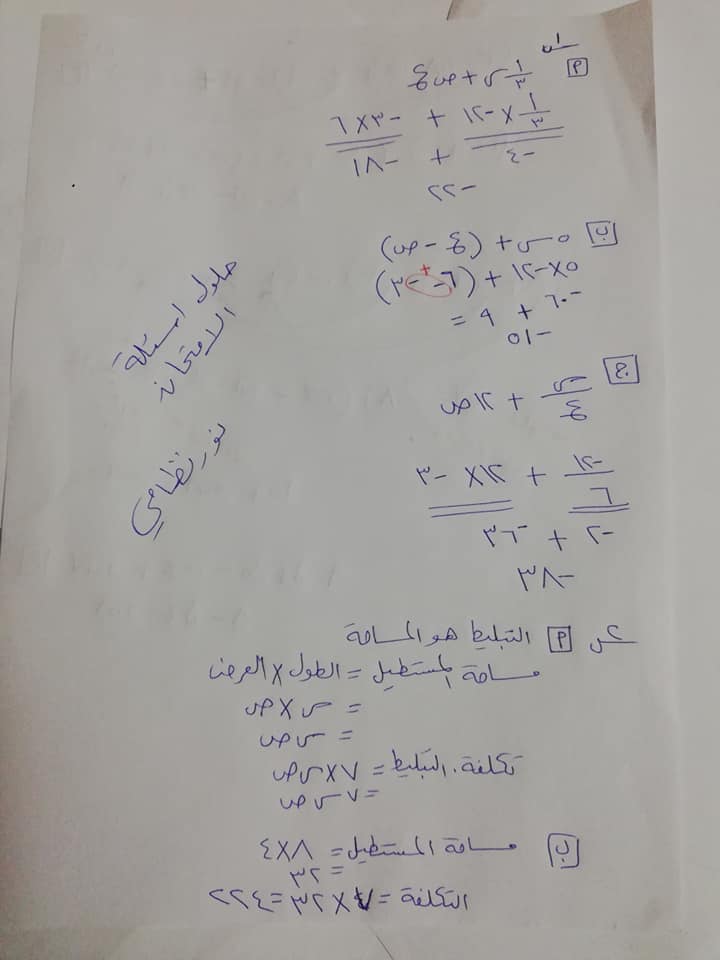 س١
أ ١/٣ س + ص ع
١/٣ × -١٢ + -٣ × ٦
-٤ + -١٨
-٢٢
ب ٥س + (ع - ص)
٥ × -١٢ + (٦ - -٣)
+
-٦٠ + ٩ =
-٥١
ج س/ع + ١٢ص
-١٢/٦ + ١٢ × -٣
-٢ + -٣٦
-٣٨
حلول اسئلة
الامتحان
نور نظامي
أ التبليط هو المساحة
مساحة المستطيل = الطول × العرض
= س × ص
= س ص
تكلفة التبليط = ٧ × س ص
= ٧ س ص
ب مساحة المستطيل = ٨ × ٤
= ٣٢
التكلفة = ٧ × ٣٢ = ٢٢٤